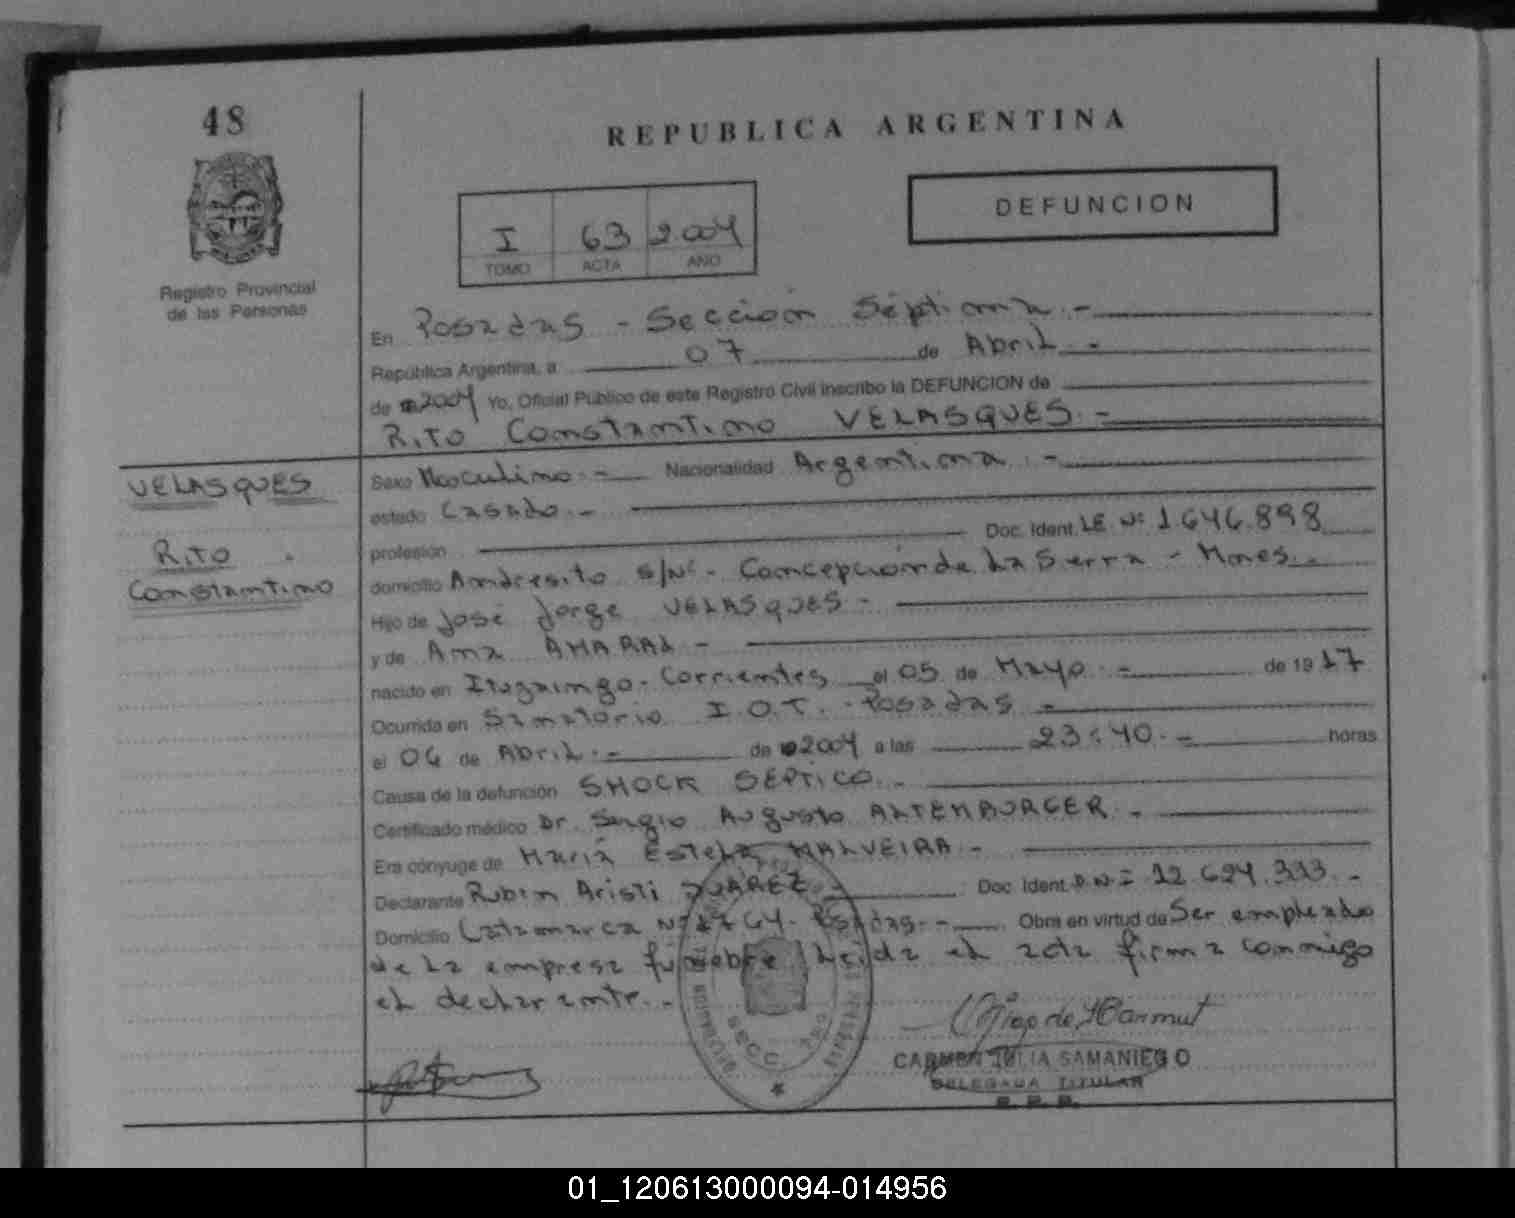 48
REPUBLICA ARGENTINA
DEFUNCION
I 63 2.004
TOMO ACTA AÑO
Registro Provincial
de las Personas
En Posadas - Sección Séptima.-
República Argentina, a 07 de Abril.-
de 2004 Yo, Oficial Público de este Registro Civil inscribo la DEFUNCION de
Rito Constantino VELASQUES.-
VELASQUES
Rito
Constantino
Sexo Masculino.- Nacionalidad Argentina.-
estado Casado.-
profesión Doc. Ident. L.E. Nº 1.646.898
domicilio Andresito S/Nº- Concepción de La Sierra - Mnes.-
Hijo de José Jorge VELASQUES-
y de Ana AMARAL-
nacido en Ituzaingo- Corrientes el 05 de Mayo.- de 1917
Ocurrida en Sanatorio I.O.T. - Posadas-
el 06 de Abril.- de 2004 a las 23:40.- horas
Causa de la defunción SHOCK SEPTICO.-
Certificado médico Dr. Sergio Augusto ALTEMBURGER.-
Era cónyuge de María Estela MALVEIRA-
Declarante Rubén Aristi JUAREZ- Doc. Ident. D.N.I 12.624.333.-
Domicilio Catamarca Nº 1764- Posadas.- Obra en virtud de Ser empleado
de la empresa fúnebre Leida el acta firma conmigo
el declarante.-
SECC.
CARMEN JULIA SAMANIEGO
DELEGADA TITULAR
R. P. P.
01_120613000094-014956